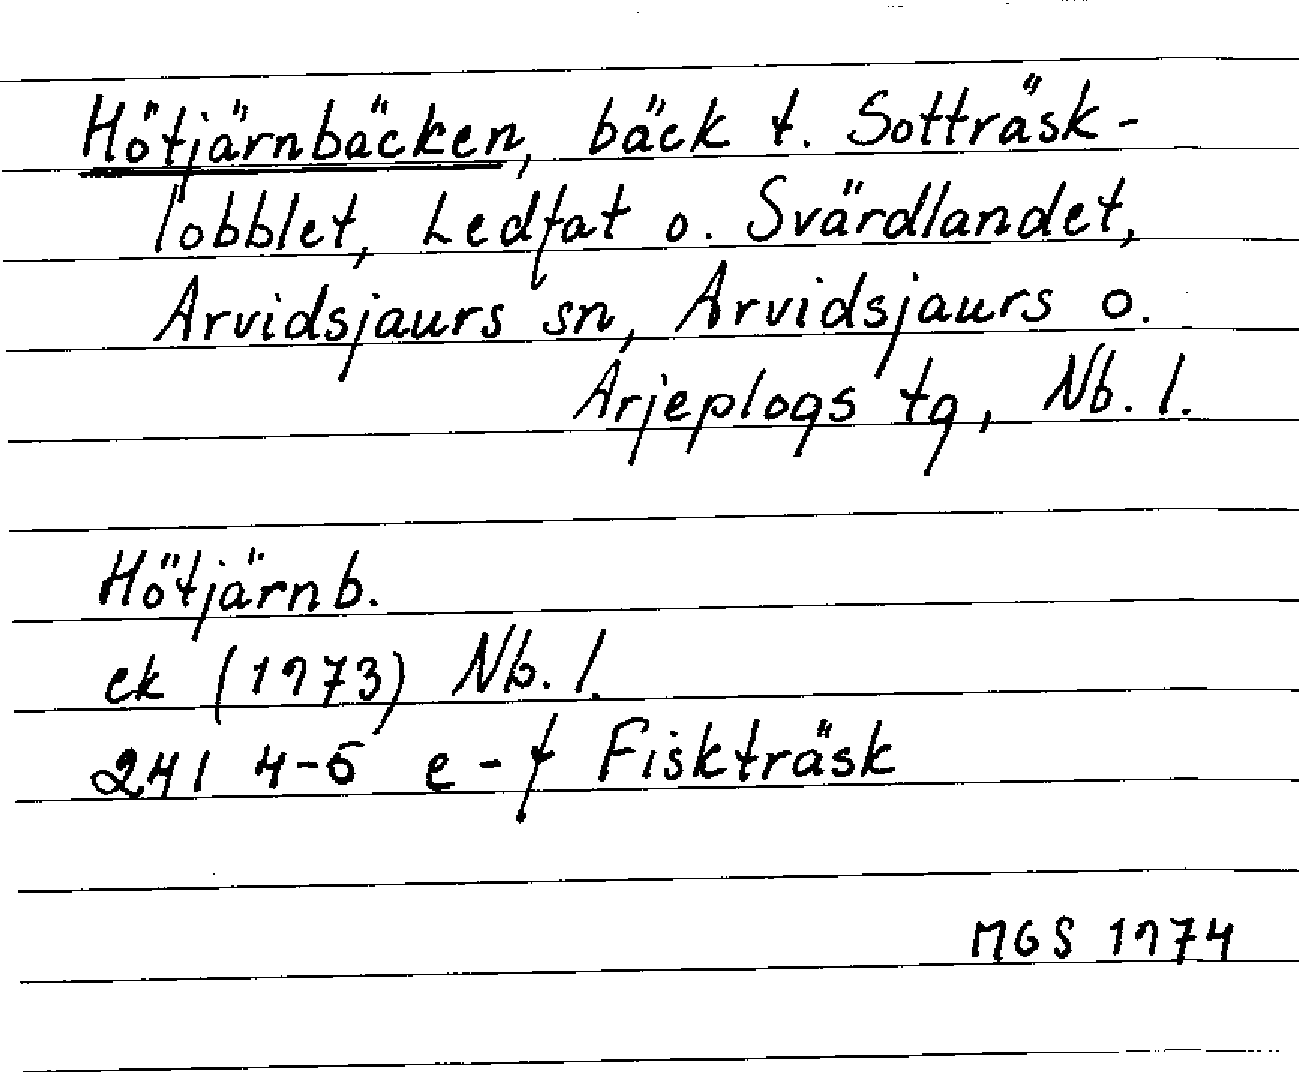 Hötjärnbäcken, bäck t. Sotträsk-
lobblet, Ledfat o. Svärdlandet,
Arvidsjaurs sn, Arvidsjaurs o.
Arjeplogs tg, Nb. l.
Hötjärnb.
ek (1973) Nb. l.
241 4-5 e-f Fiskträsk
MGS 1974